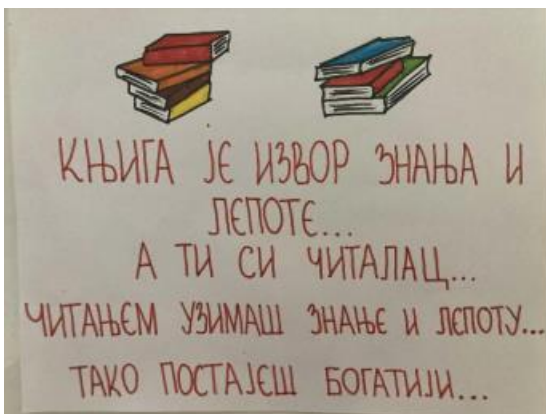 КЊИГА ЈЕ ИЗВОР ЗНАЊА И
ЛЕПОТЕ...
А ТИ СИ ЧИТАЛАЦ...
ЧИТАЊЕМ УЗИМАШ ЗНАЊЕ И ЛЕПОТУ...
ТАКО ПОСТАЈЕШ БОГАТИЈИ...